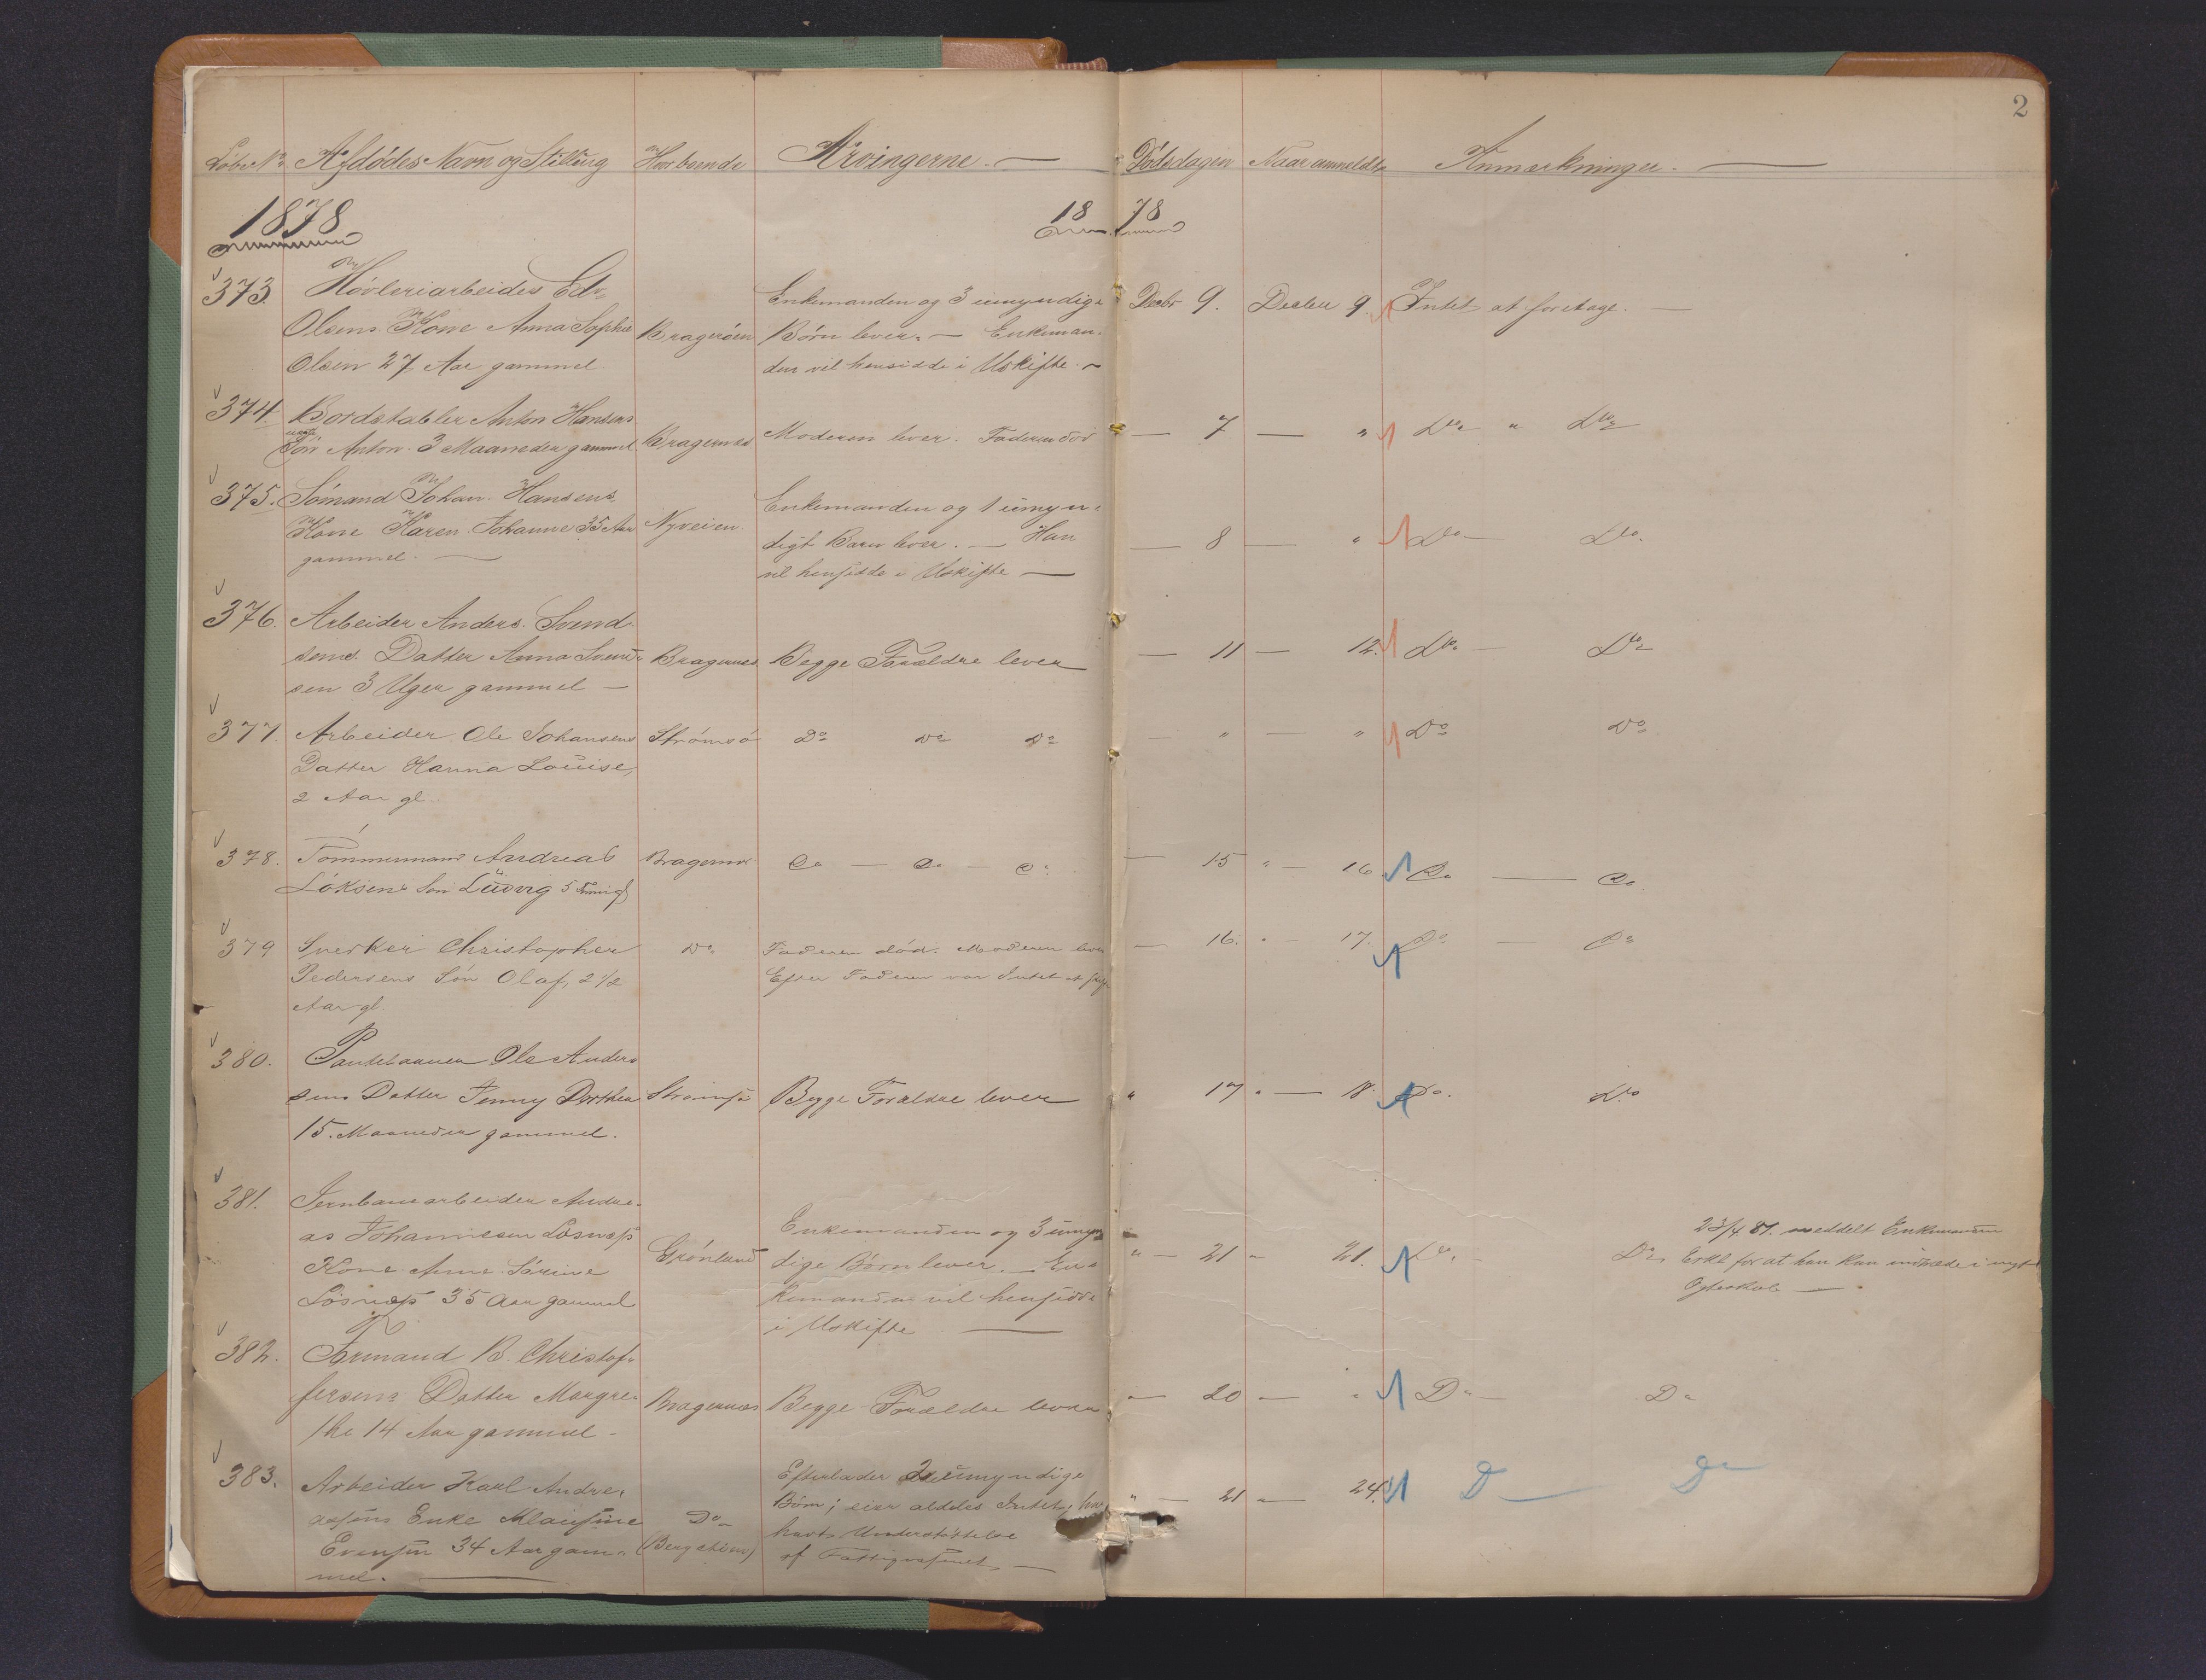 2
Løbe No. Afdødes Navn og Stilling Hvor boende Arvingerne. — Dødsdagen Naar anmeldt Anmærkninger. —
1878. 1878
373. Høvleriarbeider Edv.
Olsens Kone Anna Sophie
Olsen 27 Aar gammel
Bragerøen
Enkemanden og 3 umyndige
Børn lever. — Enkeman-
den vil hensidde i Uskifte. —
Decbr 9. Decber 9. Intet at foretage. —
374. Bordstabler Anton Hansens
uægte
Søn Anton 3 Maaneder gammel.
Bragernes
Moderen lever. Faderen død
— 7 — " Do " Do
375. Sømand Johan Hansens
Kone Karen Johanne 35 Aar
gammel. —
Nyveien
Enkemanden og 1 umyn-
digt Barn lever. — Han
vil hensidde i Uskifte —
— 8 — " Do — Do.
376. Arbeider Anders Svend-
sens Datter Anna Svend-
sen 3 Uger gammel —
Bragernes
Begge Forældre lever
— 11 — 12. Do — Do
377. Arbeider Ole Johansens
Datter Hanna Louise,
2 Aar gl.
Strømsø
Do Do Do
— " — " Do Do
378. Tømmermand Andreas
Løksens Søn Ludvig 5
Bragernes
Do — Do — Do
— 15 " — 16 Do — Do.
379 Snerker Christopher
Pedersens Søn Olaf, 2 1/2
Aar gl.
Do
Faderen død. Moderen lever
Efter Faderen var Intet at
— 16. " — 17. Do — Do
380. Ole Ander-
sens Datter Jenny Dorthea
15. Maaneder gammel.
Strømsø
Begge Forældre lever
" 17 " — 18. Do. Do
381. Jernbanearbeider Andre-
as Johannesen Løsnæs
Kone Anne Sørine
Løsnæs 35 Aar gammel
Grønland
Enkemanden og 3 umyn-
dige Børn lever. — En-
kemanden vil hensidde
i Uskifte —
" — 21 " 21. Do. — Do
23/4 81. meddelt Enkemanden
Erkl for at han kan indtræde i nyt
Egteskab —
382. Formand B. Christof-
fersens Datter Margre-
the 14 Aar gammel —
Bragernes
Begge Forældre lever
— 20 — " Do — Do
383. Arbeider Karl Andre-
asens Enke Klausine
Evensen 34 Aar gam-
mel. —
Do
(Bergstien)
Efterlader 2 umyndige
Børn; eier aldeles Intet; har
havt Understøttelse
af Fattigvæsenet —
" — 21 " — 24. D — Do